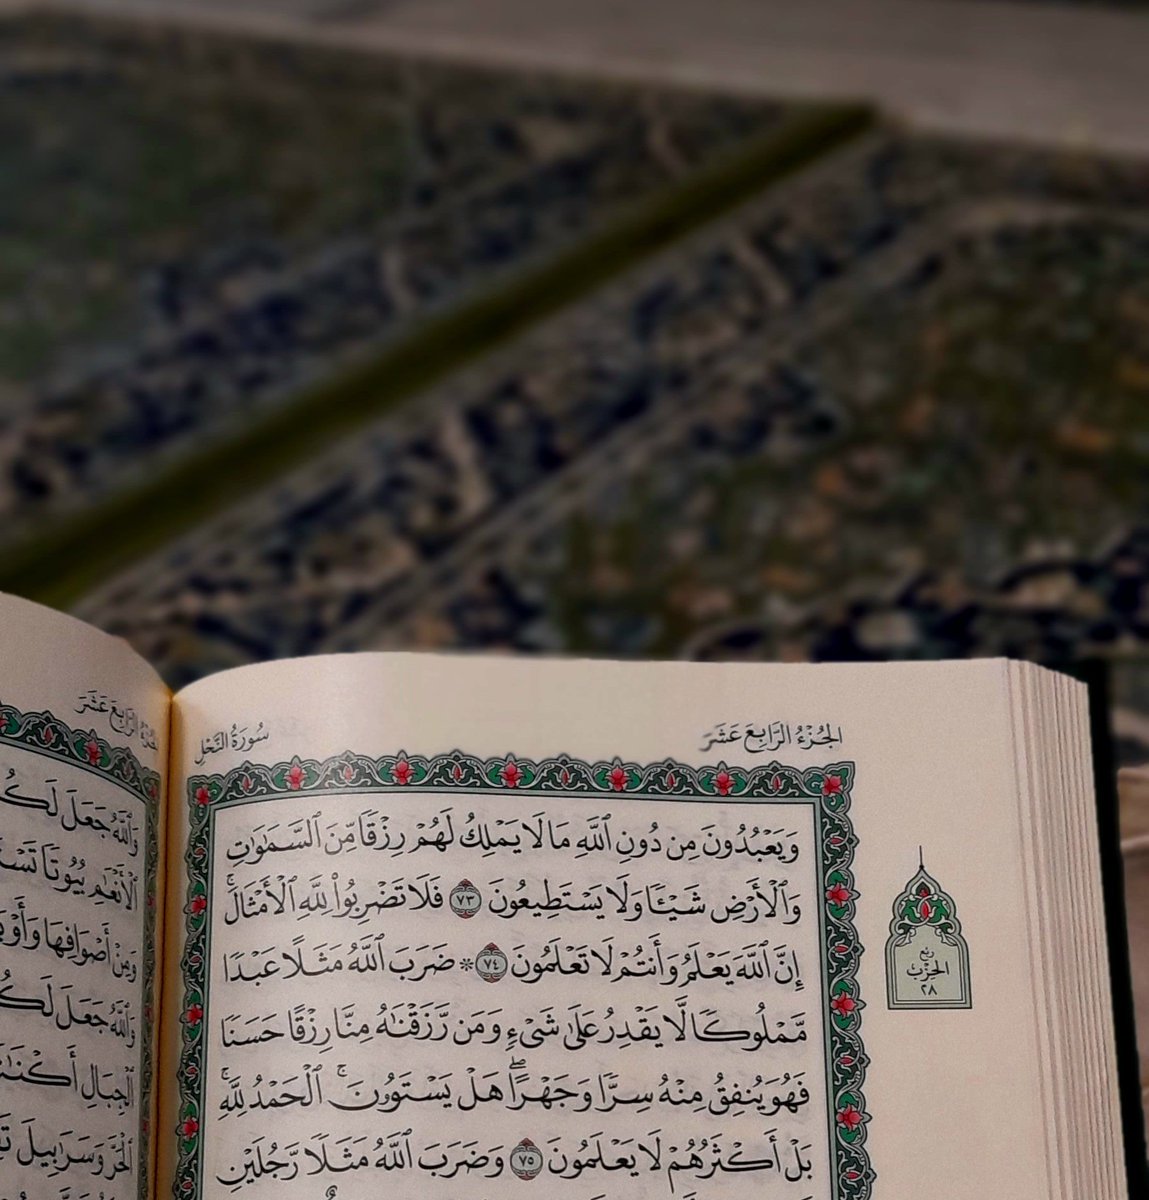 الجُزْءُ الرَّابِعَ عَشَرَ
سُورَةُ النَّحْلِ
وَيَعْبُدُونَ مِن دُونِ ٱللَّهِ مَا لَا يَمْلِكُ لَهُمْ رِزْقًا مِّنَ ٱلسَّمَٰوَٰتِ
وَٱلْأَرْضِ شَيْـًٔا وَلَا يَسْتَطِيعُونَ ٧٣ فَلَا تَضْرِبُوا۟ لِلَّهِ ٱلْأَمْثَالَ ۚ
إِنَّ ٱللَّهَ يَعْلَمُ وَأَنتُمْ لَا تَعْلَمُونَ ٧٤ * ضَرَبَ ٱللَّهُ مَثَلًا عَبْدًا
مَّمْلُوكًا لَّا يَقْدِرُ عَلَىٰ شَىْءٍ وَمَن رَّزَقْنَٰهُ مِنَّا رِزْقًا حَسَنًا
فَهُوَ يُنفِقُ مِنْهُ سِرًّا وَجَهْرًا ۖ هَلْ يَسْتَوُۥنَ ۚ ٱلْحَمْدُ لِلَّهِ ۚ
بَلْ أَكْثَرُهُمْ لَا يَعْلَمُونَ ٧٥ وَضَرَبَ ٱللَّهُ مَثَلًا رَّجُلَيْنِ
رُبْع
الحِزْب
٢٨
الجُزْءُ الرَّابِعَ عَشَرَ
وَٱللَّهُ جَعَلَ
ٱلْأَنْعَٰمِ بُيُوتًا
وَمِنْ أَصْوَافِهَا
وَٱللَّهُ جَعَلَ
ٱلْجِبَالِ
ٱلْحَرَّ وَسَرَٰبِيلَ